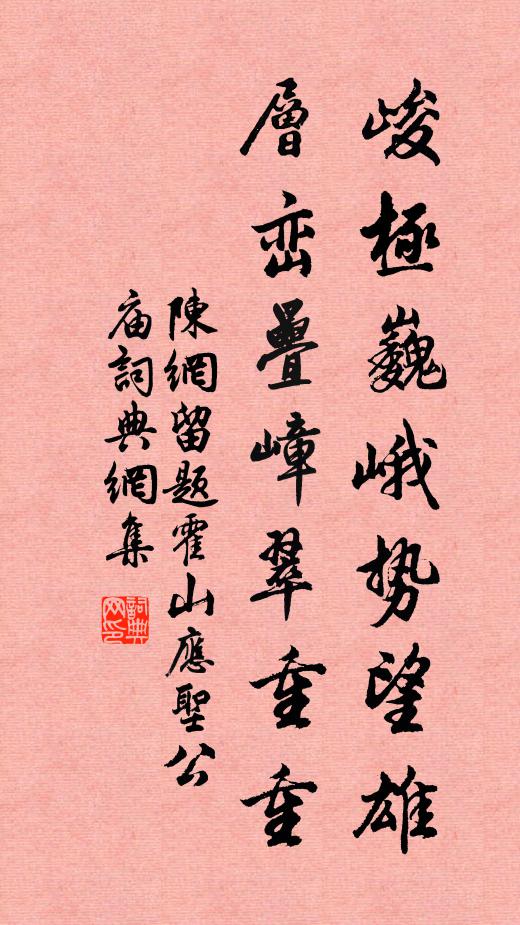 峻極巍峨勢望雄
層峦疊嶂翠重重
陳網留题霍山應聖公
庙詞典網集
詞典网印